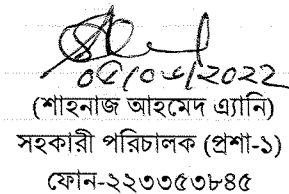 ০৫/০৬/2022
(শাহনাজ আহমেদ এ্যানি)
সহকারী পরিচালক (প্রশা-১)
ফোন-২২৩৩৫৩৮৪৫